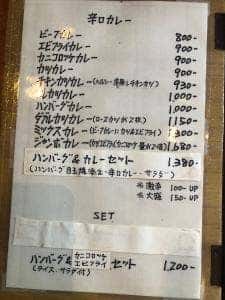 辛口カレー
ビーフカレー 800-
エビフライカレー 900-
カニコロッケカレー 900-
カツカレー 900-
チキンカツカレー(ヘルシー 薄揚しチキンカツ) 930-
カツカレー 1,000-
ハンバーグカレー 1,000-
ダブルカツカレー(ロースカツが2枚) 1,150-
ミックスカレー(ビーフカレーにカツ&エビフライ) 1,300-
ジャンボカレー(カツエビフライカニコロッケ 量が2倍) 1,680-
ハンバーグ&カレーセット 1,380-
(ハンバーグ目玉焼 辛口カレー・サラダ)
※激辛 100-UP
※大盛 150-UP
SET
ハンバーグ& カニコロッケ エビフライ セット 1,200-
(ライス・サラダ付)